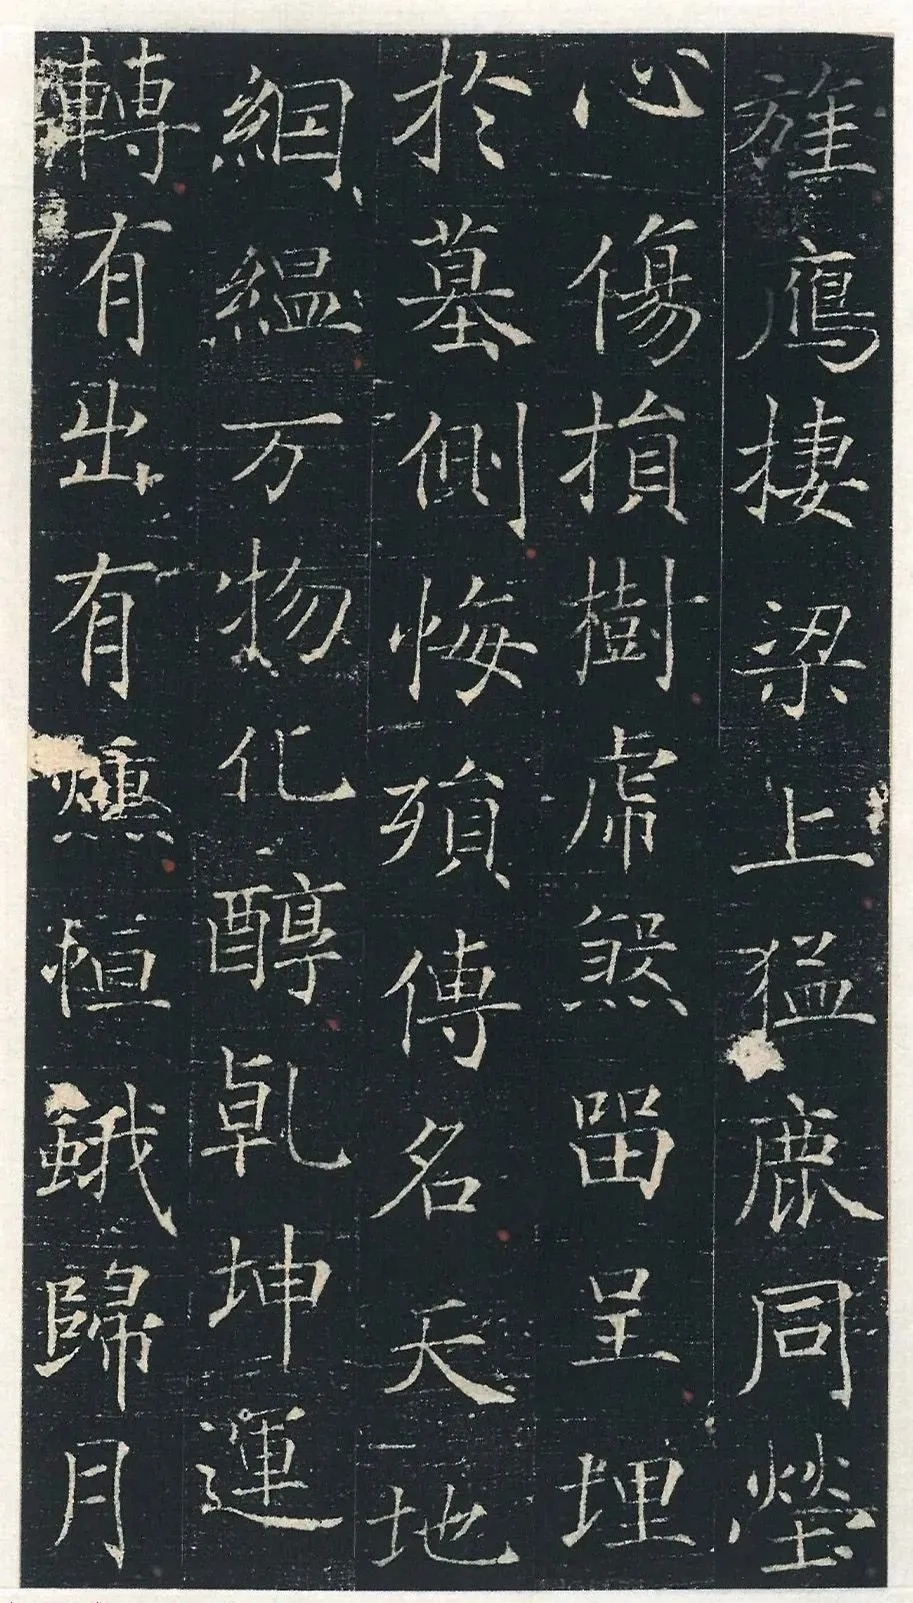 旌鴈棲梁上猛鹿同塋
心傷損樹虎煞留呈埋
於墓側悔殞傳名天地
絪縕万物化醇乹坤運
轉有出有植蛾歸月